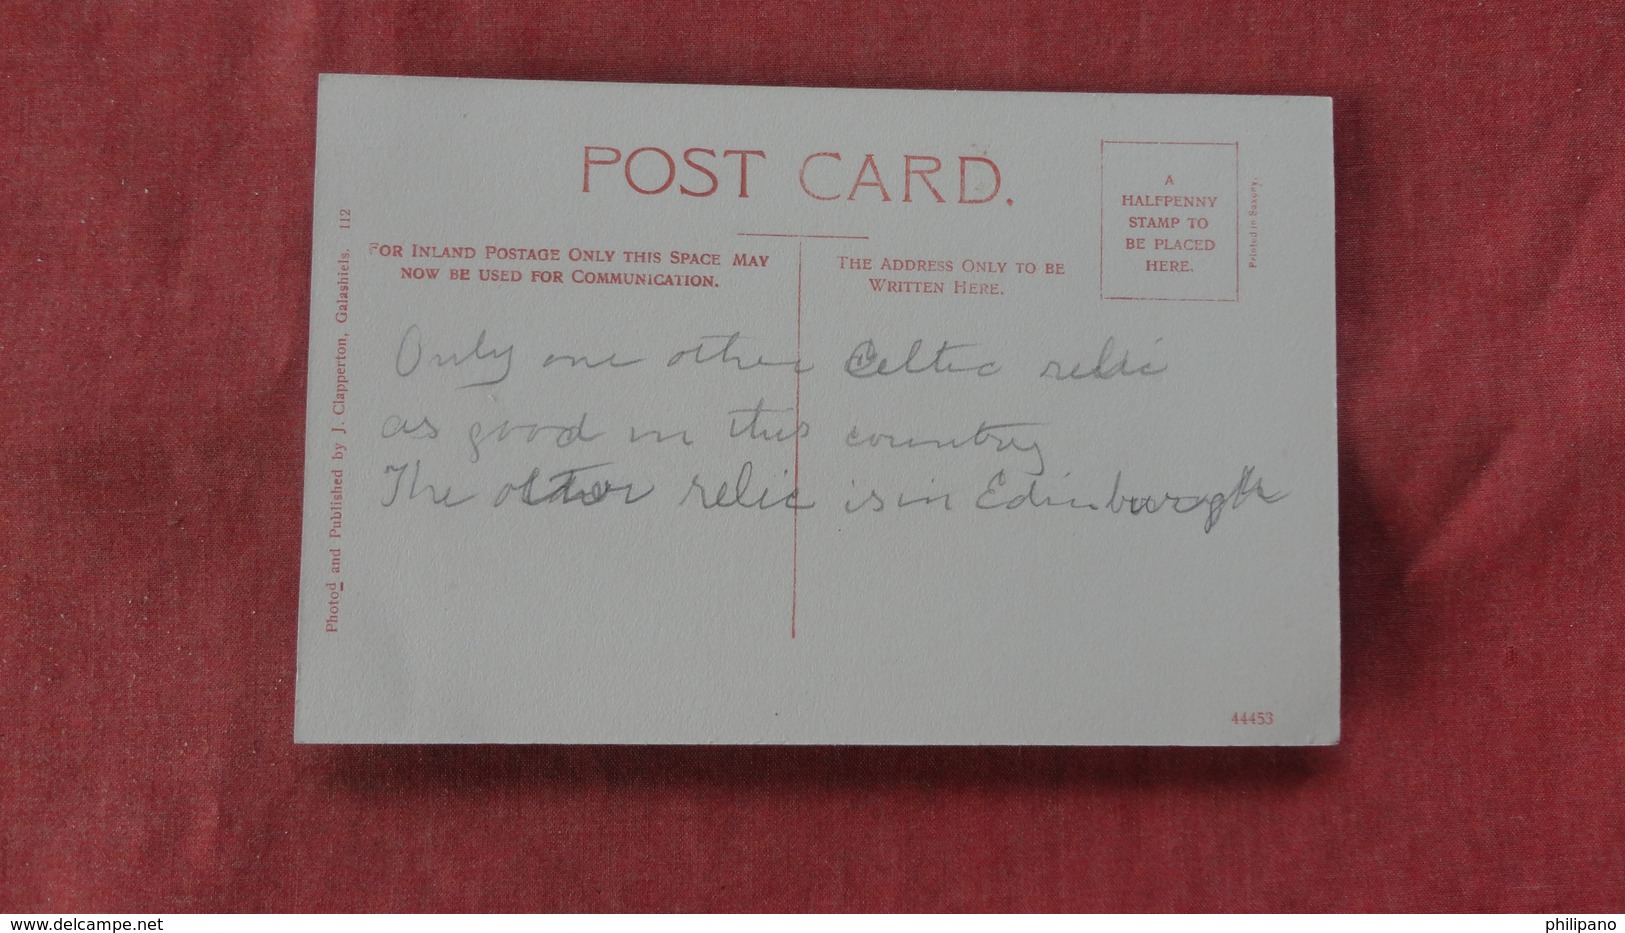 POST CARD.
A
HALFPENNY
STAMP TO
BE PLACED
HERE.
Printed in Saxony.
FOR INLAND POSTAGE ONLY THIS SPACE MAY
NOW BE USED FOR COMMUNICATION.
THE ADDRESS ONLY TO BE
WRITTEN HERE.
Photod and Published by J. Clapperton, Galashiels. 112
Only one other Celtic relic
as good in this country
The other relic is in Edinburgh
44453
www.delcampe.net
philipano